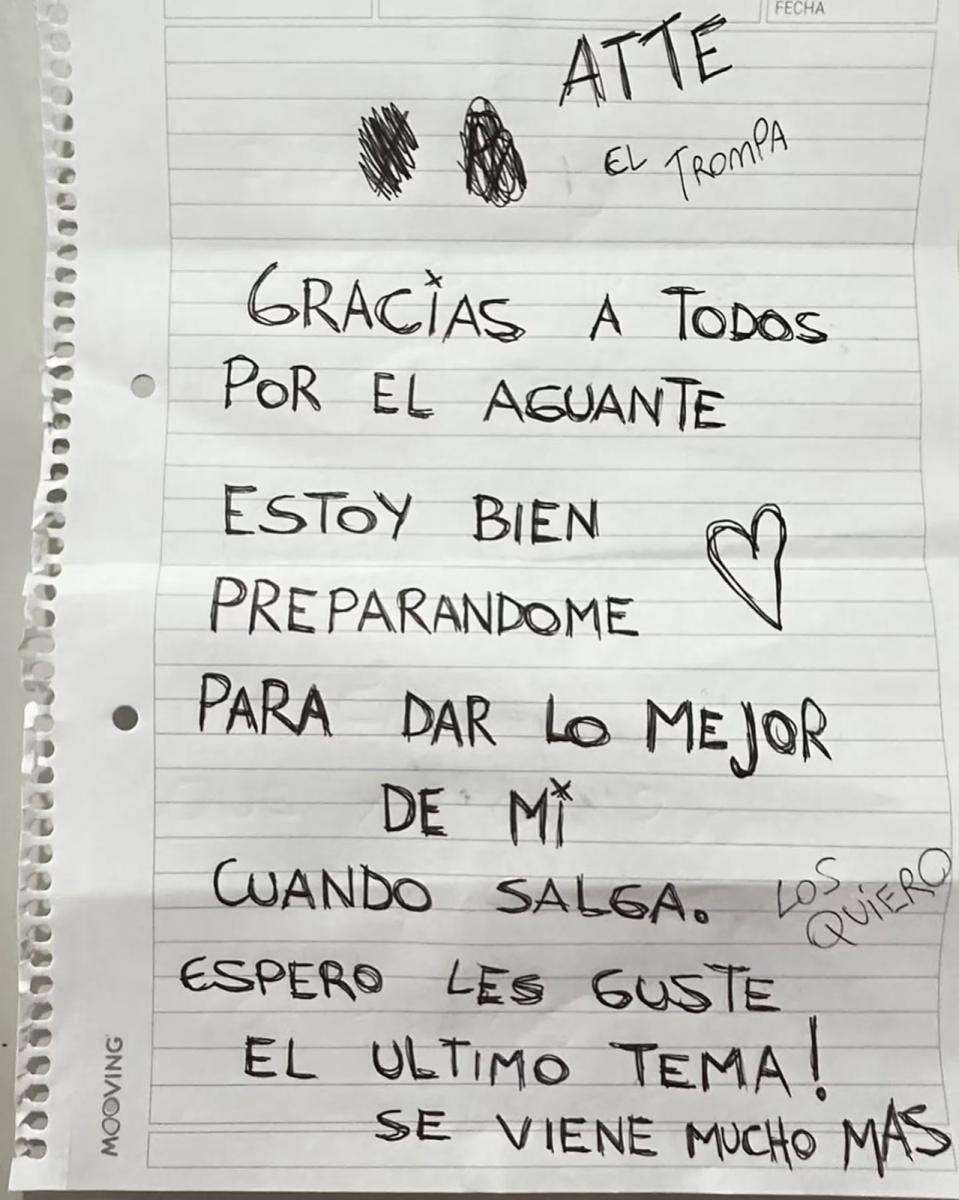 FECHA
ATTE
EL TROMPA
GRACIAS A TODOS
POR EL AGUANTE
ESTOY BIEN
PREPARANDOME
PARA DAR LO MEJOR
DE MI
CUANDO SALGA.
LOS
QUIERO
ESPERO LES GUSTE
EL ULTIMO TEMA!
SE VIENE MUCHO MAS
MOOVING